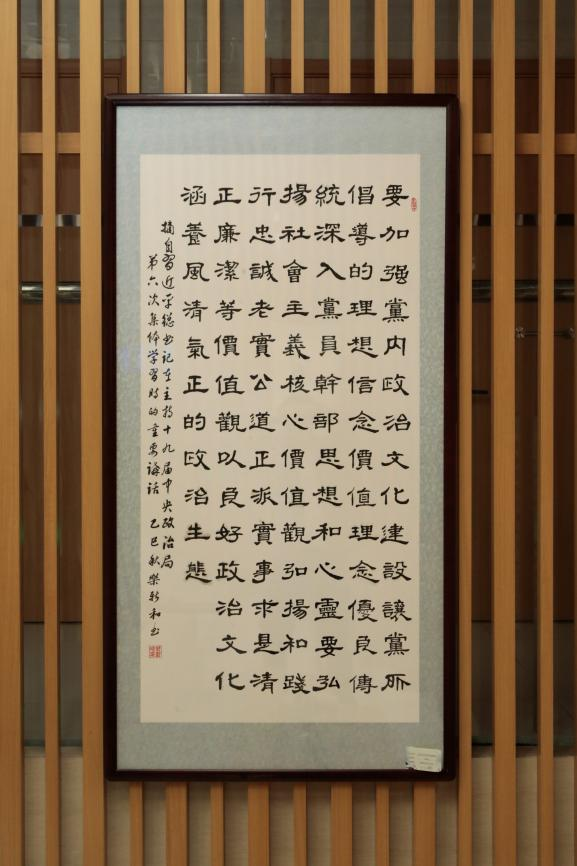 要加强黨内政治文化建設讓黨所
倡導的理想信念價值理念優良傳
統深入黨員幹部思想和心靈要弘
揚社會主義核心價值觀弘揚和踐
行忠誠老實公道正派實事求是清
正廉潔等價值觀以良好政治文化
涵養風清氣正的政治生態
摘自習近平總书记在主持十九届中央政治局
第六次集体学習时的重要講话 乙巳秋樂和书